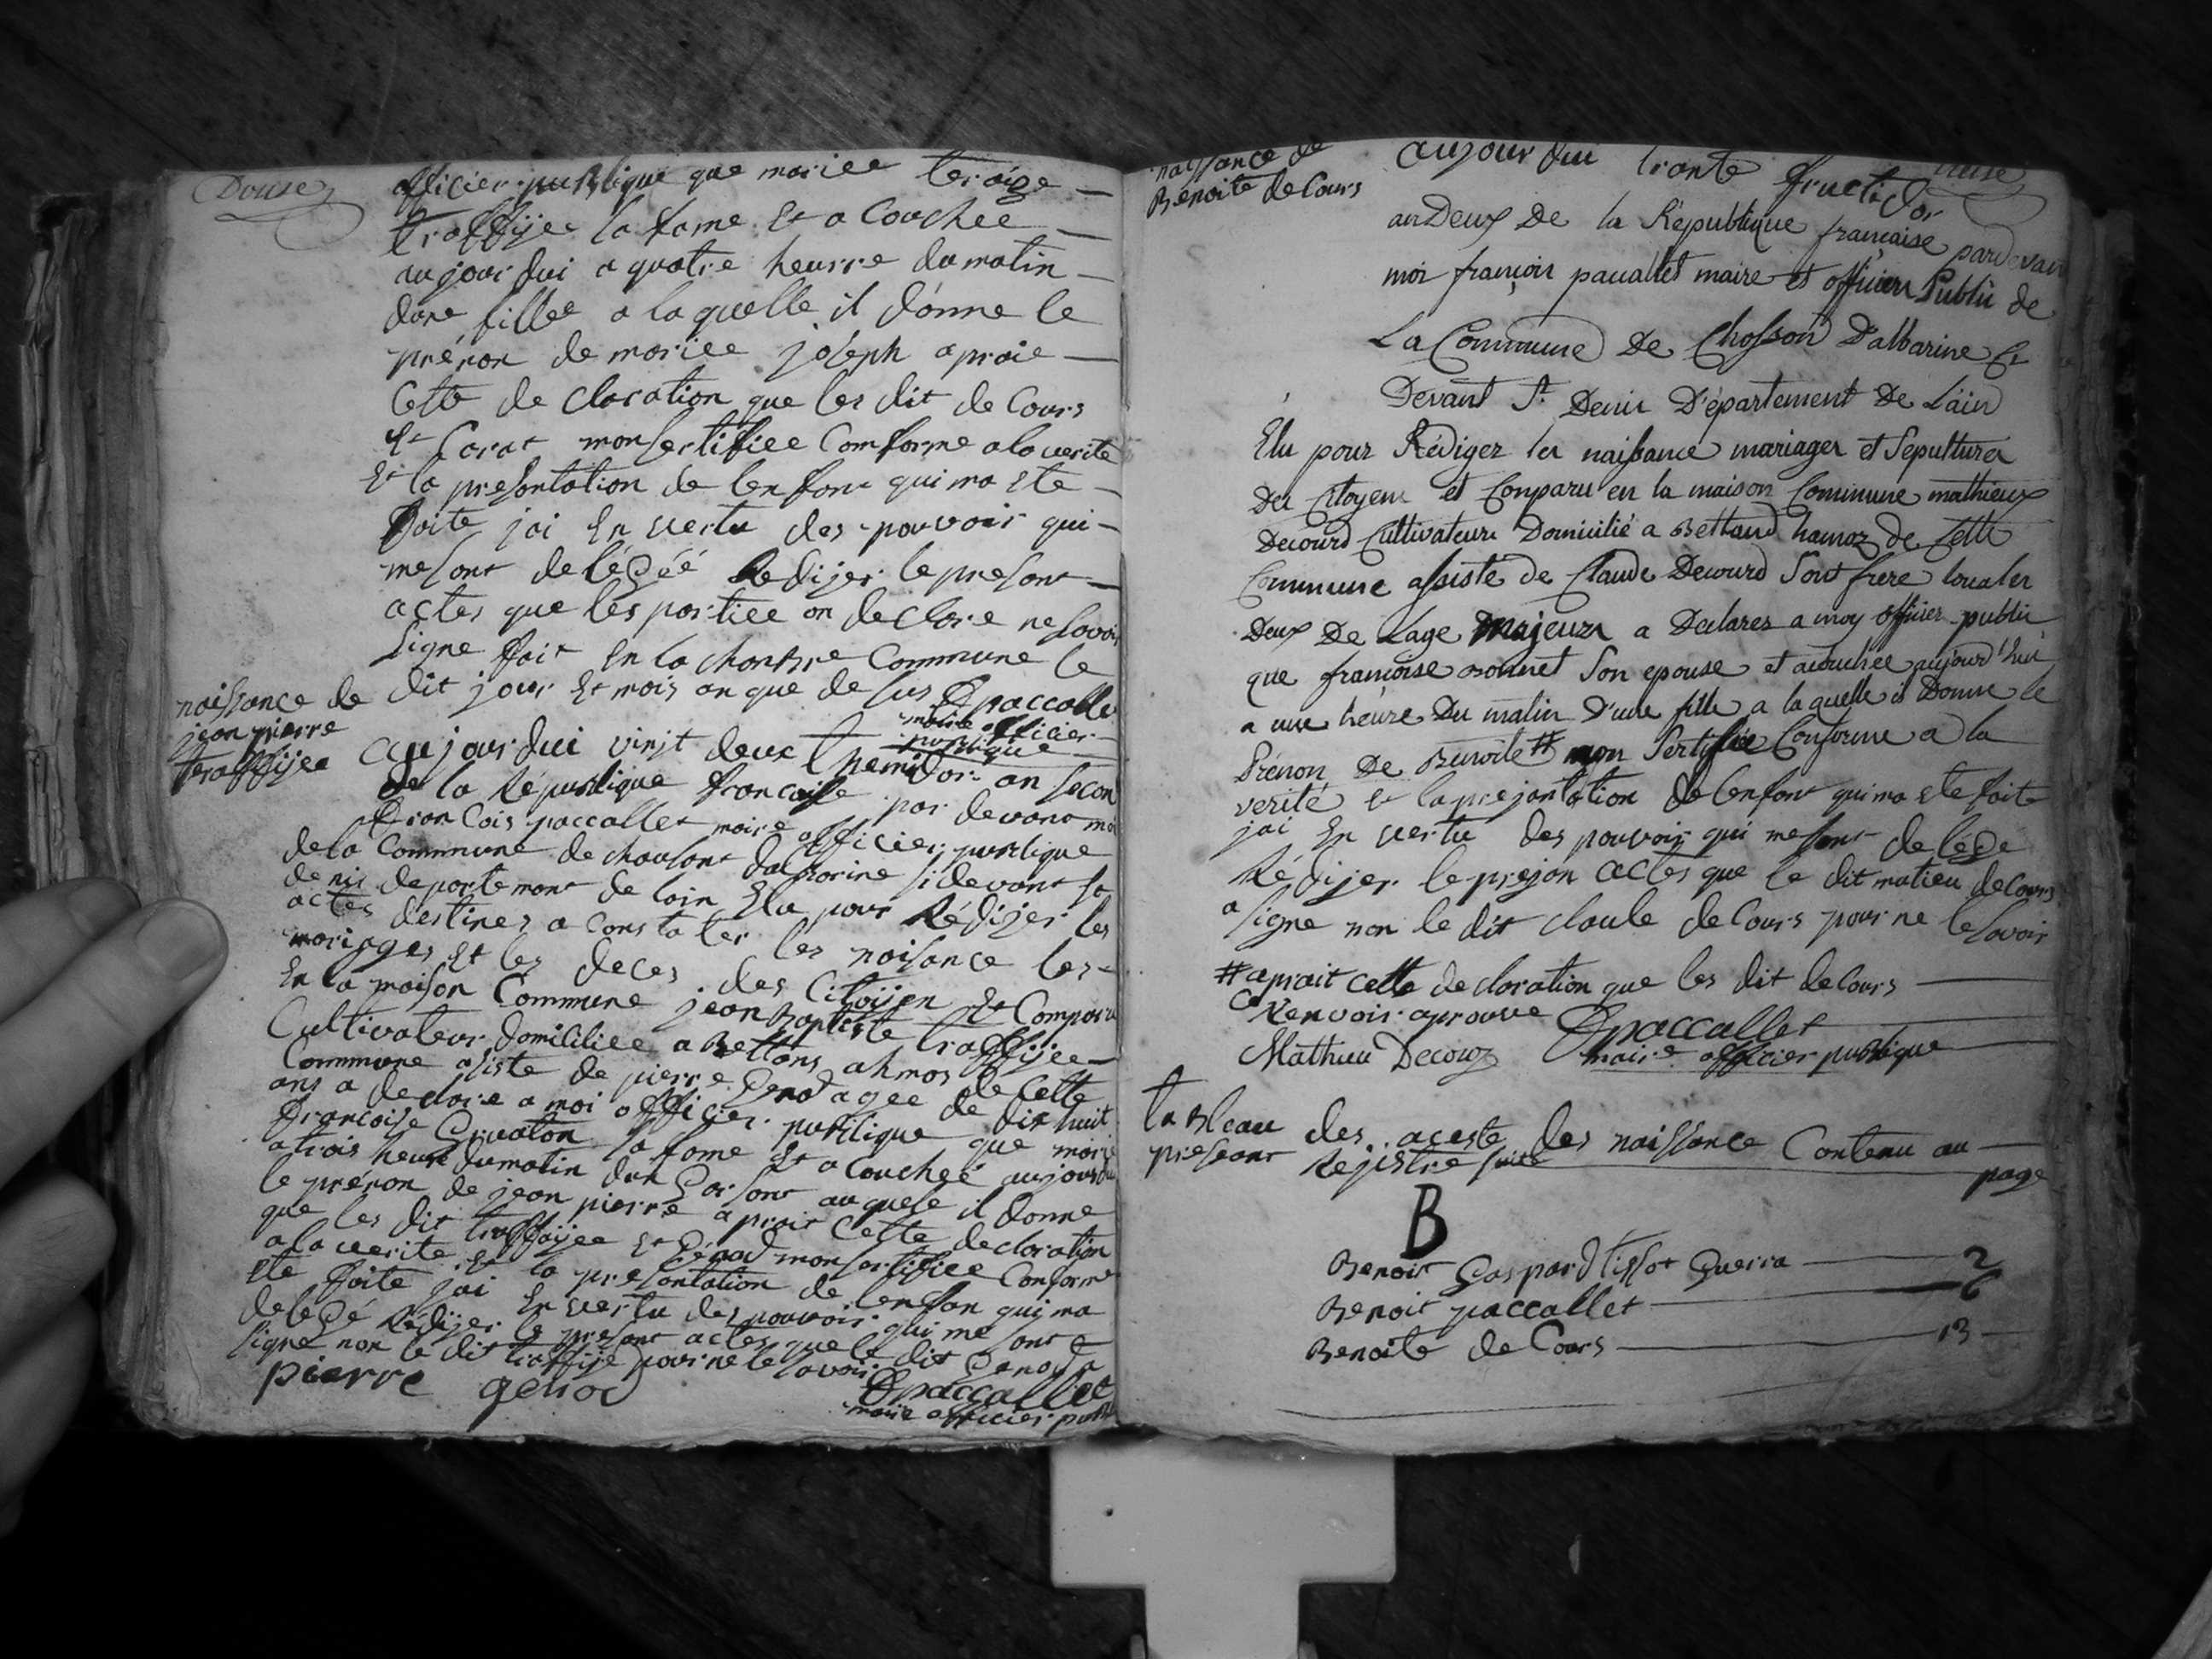 Douse
officier publique que mariee teraise
traffijee la fame Et a Couchee
aujourdui a quatre heurre dumatin
dune fillee a laquelle il donne le
prenon de mariee joseph apraie
Cette de claration que les dit de Cours
Et Carat mon sertifiee Comforme alaverite
Et la presantation de lenfant qui ma Ete
faite jai En vertu des pouvoir qui
mesont delégéé Redijer le presant
actes que les partiee on declare ne savoir
signe fait En la chambre Commune le
dit jour Et mois an que desus Fpaccalle
maire officier
publique
naissance de
jean pierre
traffijee
aujourdui vinjt deux Themidor an secon
de la Republique francaise par devant moi
francois paccallet maire officier publique
dela Commune de chausont dalbarine sidevant st
denis departemant de loin Elu pour Rédijer les
actes destines a Constater les naisance les
mariages Et les deces des Citoijen Et Comparu
En la maison Commune jean baptiste traffijee
Cultivateur domicilliee a Bettans ahmos de Cette
Commune asiste de pierre Genod agee de dix huit
ans a declare a moi officier publique que marie
francoise Gruaton sa fame Et a Couchee aujourdui
a trois heure dumatin dun Garsont auquele il donne
le prenon de jean pierre aprait Cette declaration
que les dit traffijee Et Génod mon sertifiee Conforme
ala verite Et la presantation de lenfan qui ma
Ete faite jai En vertu des pouvoir qui me sont
delégé Redijer le presant actes que le dit Genod a
signe non le dit traffije pour ne le savoir
pierre genod
Fpaccallet
maire officier publi
naissance de
Benoite de Cours
aujourdui trante fructidor
an Deux De la République française pardevan
moi françois paccallet maire et officier Public de
La Commune De Chosson D'albarine Ci
Devant St. Denis Département De L'ain
Elu pour Rédiger les naissance mariages et Sepultures
Des Citoyens et Comparu en la maison Commune mathieux
Decourd Cultivateur Domicilié a Bettand hamoz de Cette
Commune assisté de Claude Decourd Sont frere tous les
Deux De Lage majeurs a Declarez a moy officier public
que françoise bonnet Son epouse et accouchée aujourd'hui
a une heure Du matin D'une fille a laquelle il Donne le
Prénon De Benoite # mon Sertifiée Conforme a la
verité Et la prejantation de lenfant qui ma ete faite
jai En vertu des pouvoir qui mesont delége
Rédijer le prejan actes que le dit matieu de Cours
a signe non le dit claude de Cours pour ne le savoir
# aprait cette declaration que les dit de Cours
Renvoir aprouve Fpaccallet
Mathieu Decourz maire officier publique
tableau des aceste des naissance Contenu au
presant Rejistre suite
page
B
Benoit Gaspard tissot Guerra 2
Benoit paccallet 6
Benoite de Cours 13